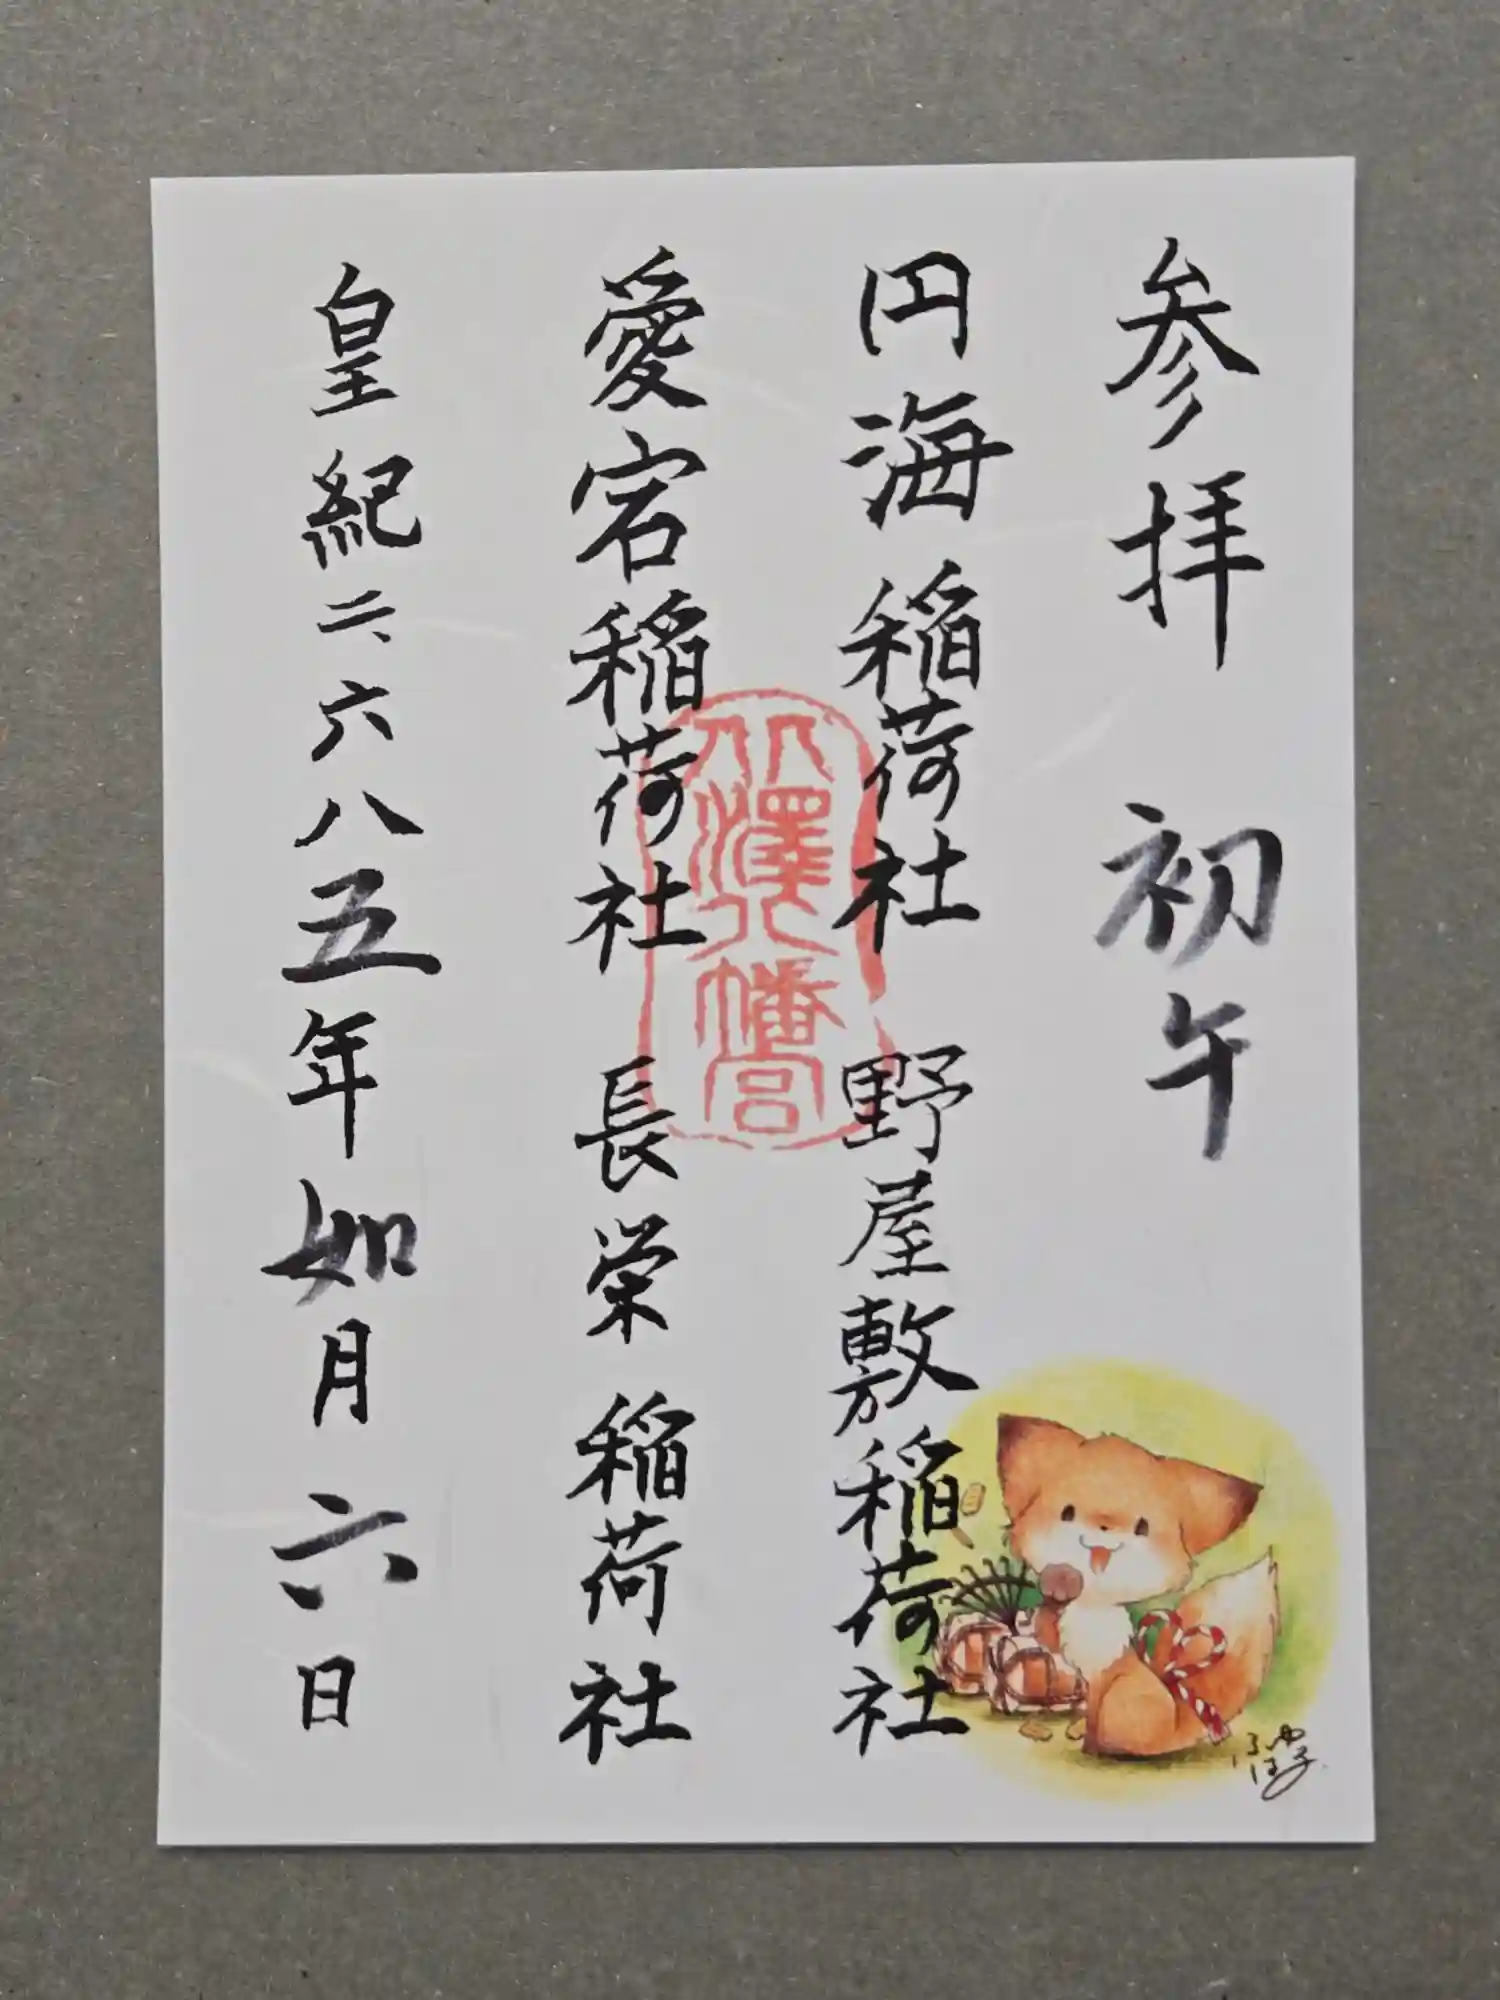 参拝 初午
円海稲荷社 野屋敷稲荷社
愛宕稲荷社 長栄稲荷社
皇紀二六八五年如月六日
澤八幡宮